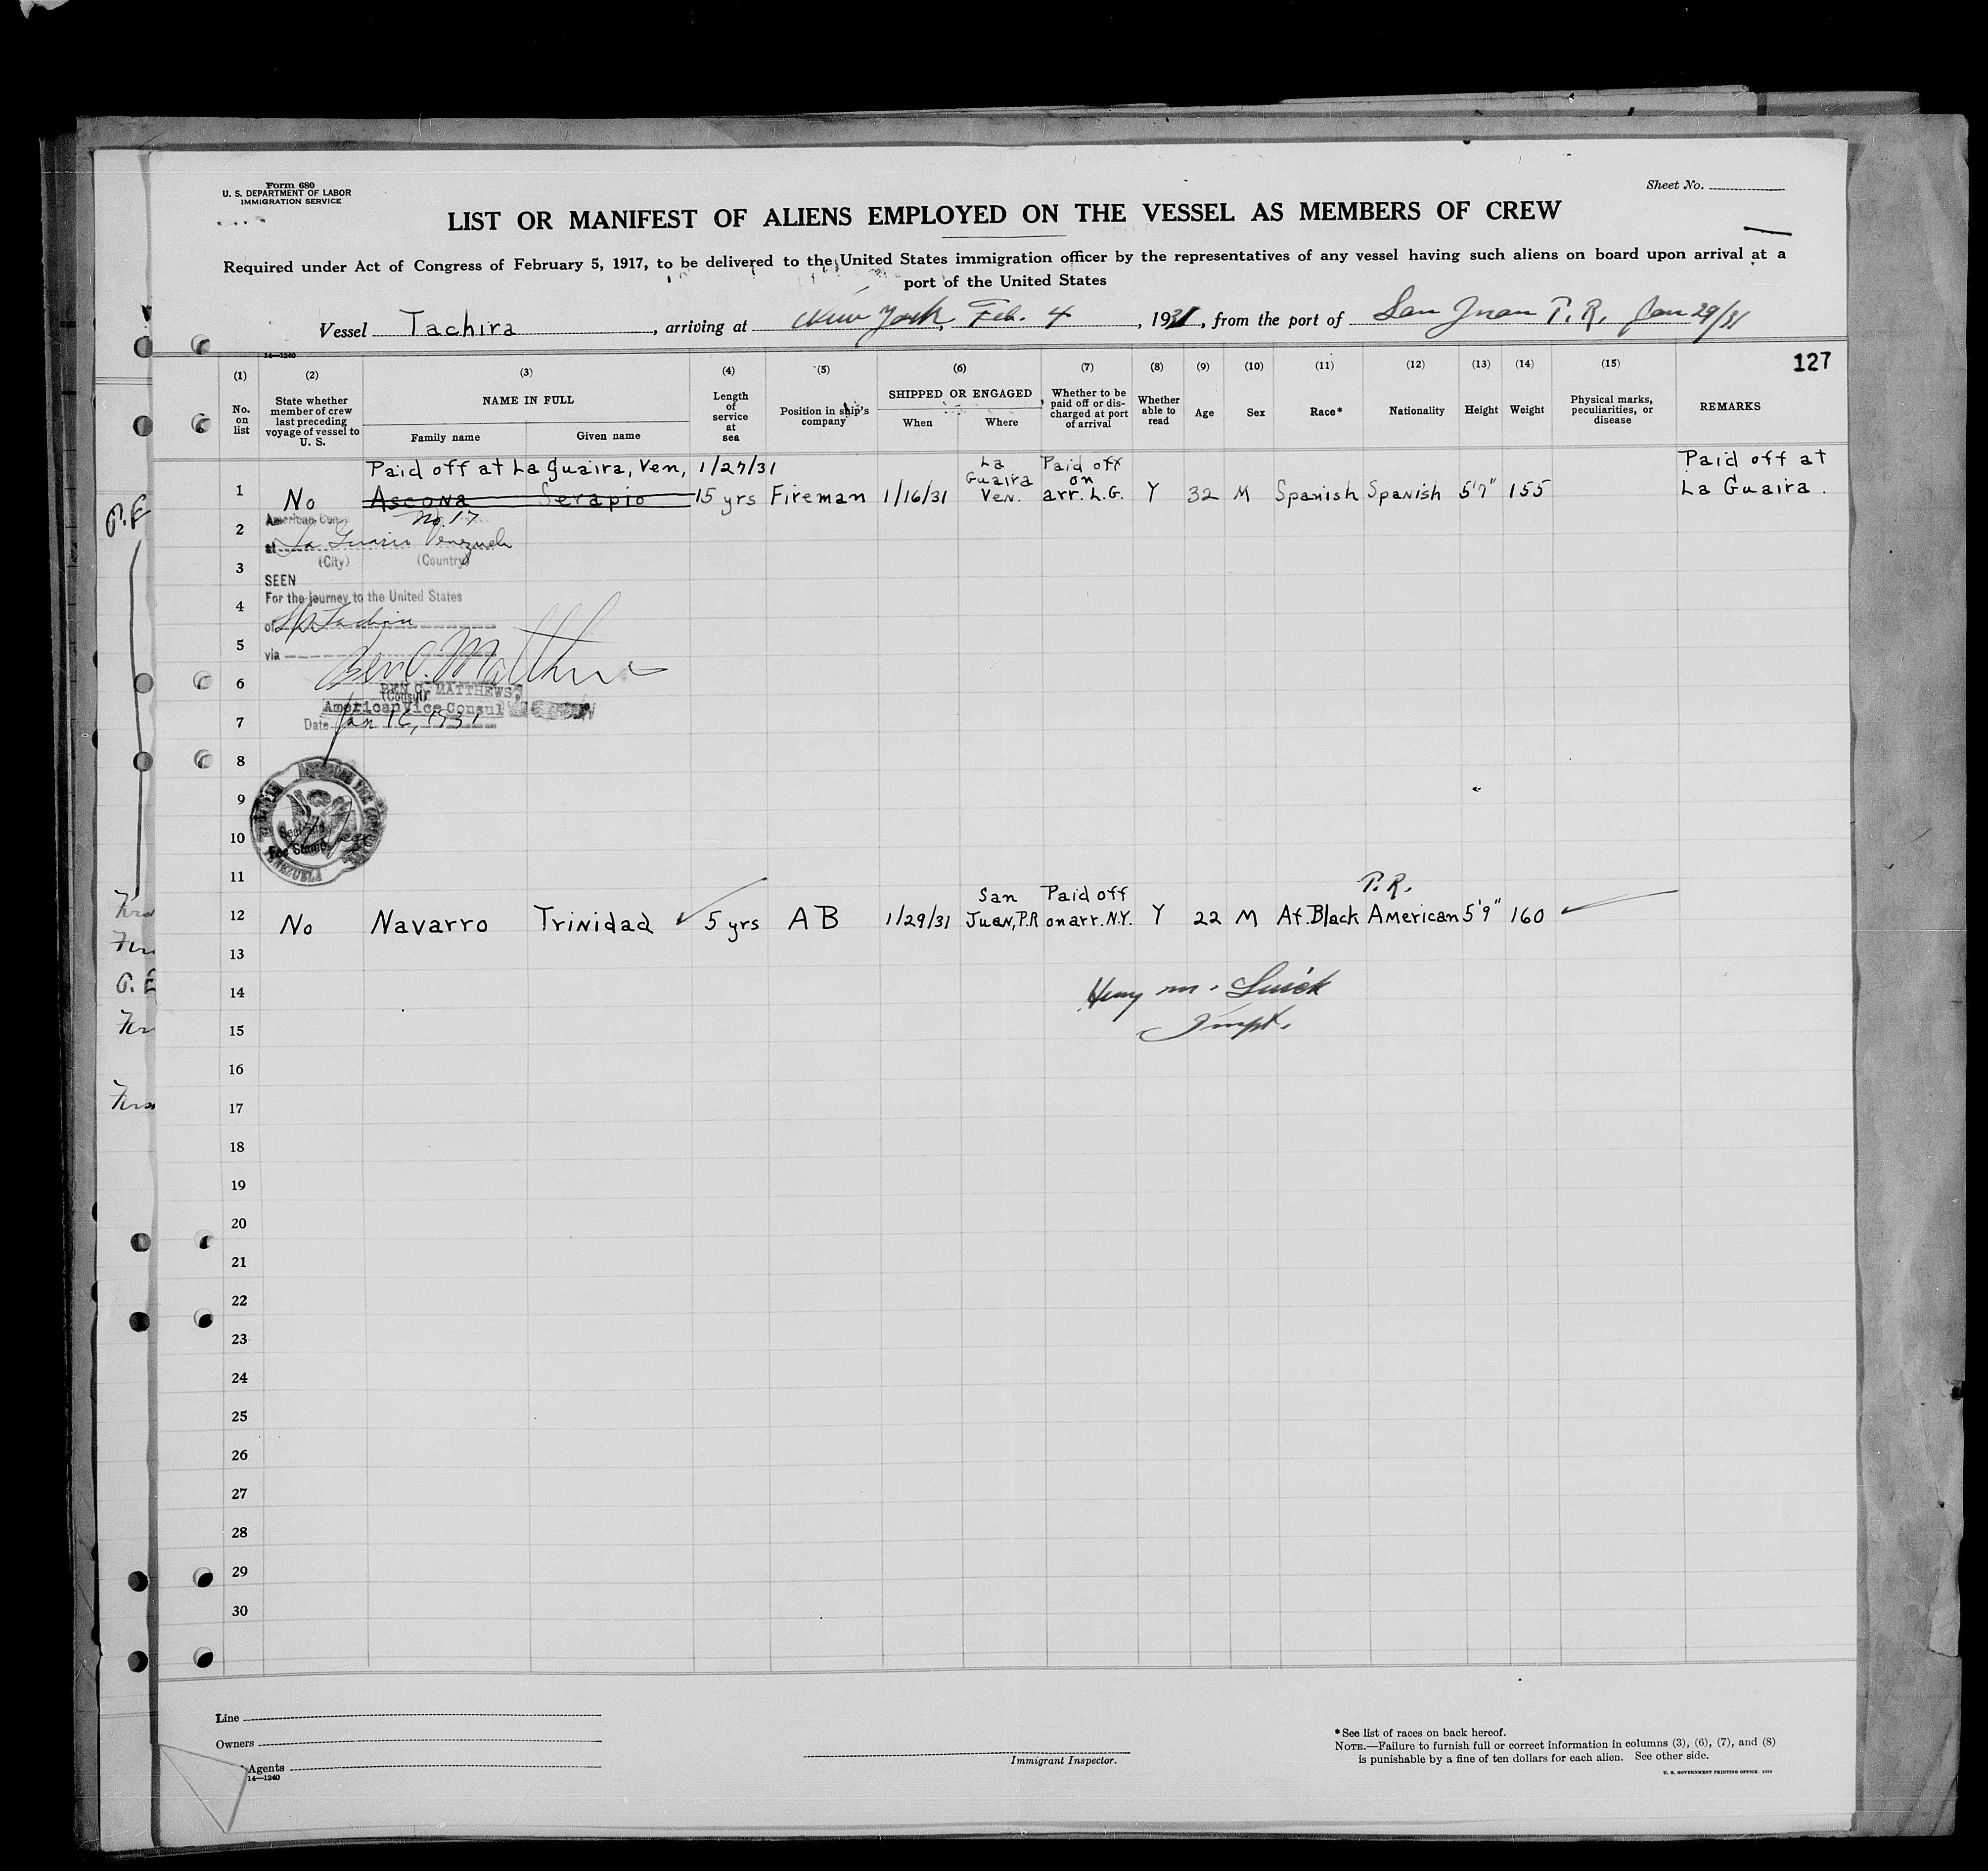 Form 680
U. S. DEPARTMENT OF LABOR
IMMIGRATION SERVICE
Sheet No.
LIST OR MANIFEST OF ALIENS EMPLOYED ON THE VESSEL AS MEMBERS OF CREW
Required under Act of Congress of February 5, 1917, to be delivered to the United States immigration officer by the representatives of any vessel having such aliens on board upon arrival at a
port of the United States
Vessel Tachira, arriving at New York, Feb. 4, 1931, from the port of San Juan P. R. Jan 29/31
14—1240
127
(1) (2) (3) (4) (5) (6) (7) (8) (9) (10) (11) (12) (13) (14) (15)
No. on list
State whether member of crew last preceding voyage of vessel to U. S.
NAME IN FULL
Family name
Given name
Length of service at sea
Position in ship's company
SHIPPED OR ENGAGED
When
Where
Whether to be paid off or discharged at port of arrival
Whether able to read
Age
Sex
Race*
Nationality
Height
Weight
Physical marks, peculiarities, or disease
REMARKS
Paid off at La Guaira, Ven, 1/27/31
1 No Ascona Serapio 15 yrs Fireman 1/16/31 La Guaira Ven. Paid off on arr. L.G. Y 32 M Spanish Spanish 5'7" 155 Paid off at La Guaira.
No. 17
2
at La Guaira Venezuela
(City) (Country)
3
SEEN
For the journey to the United States
4
of
5
via
Ben C. Matthews
6
BEN C. MATTHEWS
(Consul)
American Vice Consul
7
Date Jan 16, 1931
8
9
10
Fee Stamp
VENEZUELA
11
P.R.
12 No Navarro Trinidad 5 yrs AB 1/29/31 San Juan, P.R Paid off on arr. N.Y. Y 22 M Af. Black American 5'9" 160
13
14
Henry M.
15
16
17
18
19
20
21
22
23
24
25
26
27
28
29
30
Line
Owners
Agents
14—1240
Immigrant Inspector.
*See list of races on back hereof.
NOTE.—Failure to furnish full or correct information in columns (3), (6), (7), and (8)
is punishable by a fine of ten dollars for each alien. See other side.
U. S. GOVERNMENT PRINTING OFFICE. 1930